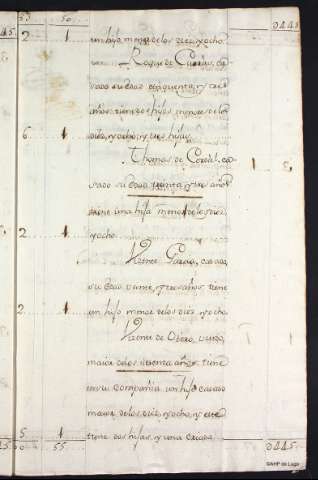 53 50 0445
2 1 un hijo menor de los diez y ocho
Roque de ca
sado su edad cinquenta y seis
años, tiene hijos menores de los
6 1 diez y ocho, y tres hijas
Thomas de ca
sado su edad treinta y tres años 1 5
tiene una hija menor de los diez
2 1 y ocho
Vizente Garcia, casado,
su edad veinte y tres años, tiene
2 1 un hijo menor de los diez y ocho
Vizente de Otero, viudo,
maior de los sesenta años, tiene
en su compañia un hijo casado
maior de los diez y ocho, y este
5 1 tiene dos hijas, y una casada
55 0445
©AHP de Lugo